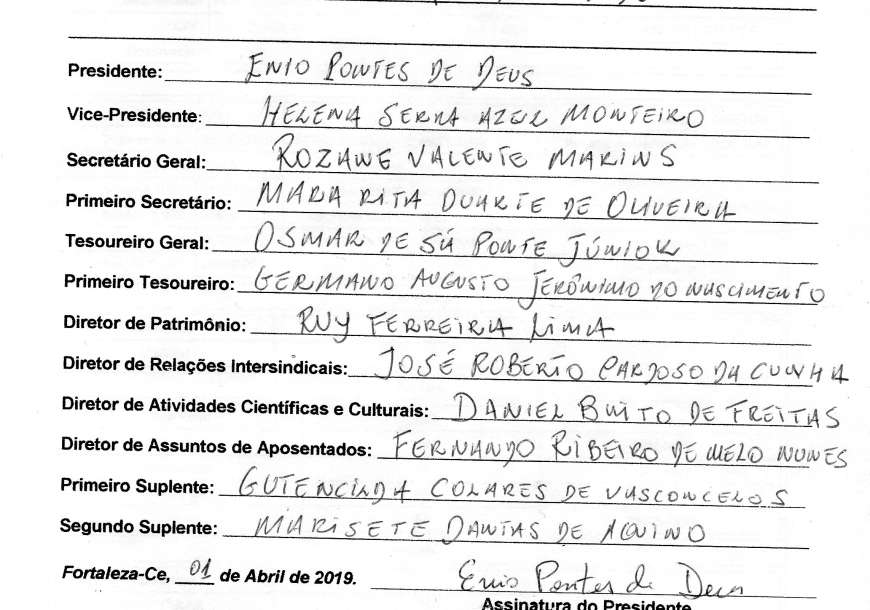 Presidente: ENIO PONTES DE DEUS
Vice-Presidente: HELENA SERRA AZUL MONTEIRO
Secretário Geral: ROZANE VALENTE MARINS
Primeiro Secretário: MARIA RITA DUARTE DE OLIVEIRA
Tesoureiro Geral: OSMAR DE SÁ PONTE JÚNIOR
Primeiro Tesoureiro: GERMANO AUGUSTO JERÔNIMO DO NASCIMENTO
Diretor de Patrimônio: RUY FERREIRA LIMA
Diretor de Relações Intersindicais: JOSÉ ROBERTO CARDOSO DA CUNHA
Diretor de Atividades Científicas e Culturais: DANIEL BRITO DE FREITAS
Diretor de Assuntos de Aposentados: FERNANDO RIBEIRO DE MELO NUNES
Primeiro Suplente: GUTENCILDA COLARES DE VASCONCELOS
Segundo Suplente: MARISETE DANTAS DE AQUINO
Fortaleza-Ce, 01 de Abril de 2019. Enio Pontes de Deus
Assinatura do Presidente